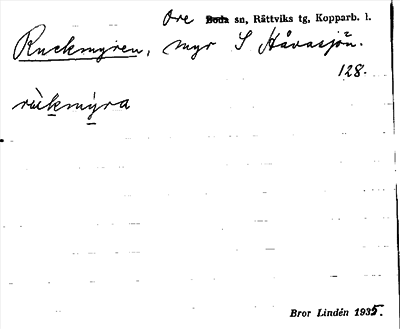 Ore Boda sn, Rättviks tg, Kopparb. l.
Ruckmyren, myr S Håvasjön.
128.
rùkmýra
Bror Lindén 1935.